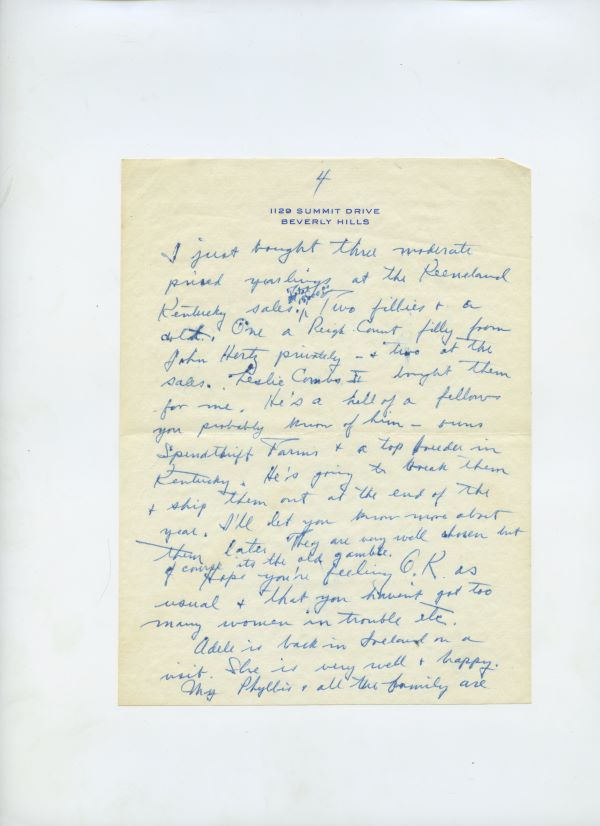 4
1129 SUMMIT DRIVE
BEVERLY HILLS
I just bought three moderate
priced yearlings at the Keeneland
Kentucky sales. Two fillies & a
colt. One a Reigh Count filly from
John Hertz privately - & two at the
sales. Leslie Combs II bought them
for me. He's a hell of a fellow
you probably know of him - owns
Spendthrift Farms & a top breeder in
Kentucky. He's going to break them
& ship them out at the end of the
year. I'll let you know more about
them later. They are very well chosen but
of course its the old gamble.
Hope you're feeling O.K. as
usual & that you haven't got too
many women in trouble etc.
Adele is back in Ireland on a
visit. She is very well & happy.
My Phyllis & all the family are